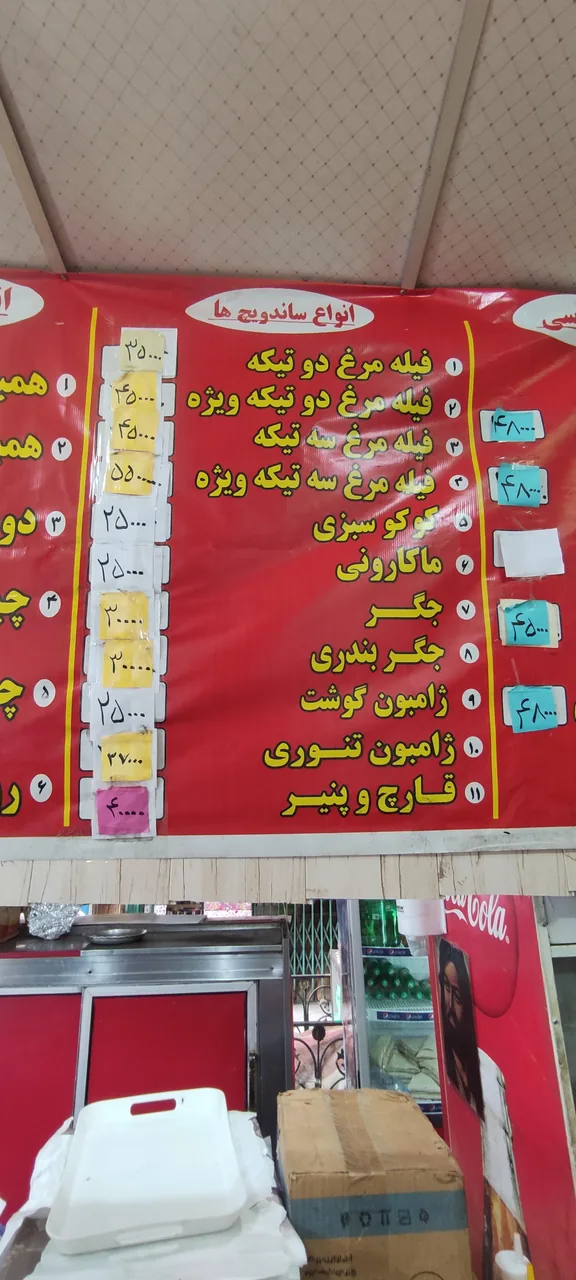 انواع ساندویچ ها
۱ فیله مرغ دو تیکه ۳۵۰۰۰
۲ فیله مرغ دو تیکه ویژه ۴۵۰۰۰
۳ فیله مرغ سه تیکه ۴۵۰۰۰
۴ فیله مرغ سه تیکه ویژه ۵۵۰۰۰
۵ کوکو سبزی ۲۵۰۰۰
۶ ماکارونی ۲۵۰۰۰
۷ جگر ۳۰۰۰۰
۸ جگر بندری ۳۰۰۰۰
۹ ژامبون گوشت ۲۵۰۰۰
۱۰ ژامبون تنوری ۳۷۰۰۰
۱۱ قارچ و پنیر ۴۰۰۰۰
۴۸۰۰۰
۴۸۰۰۰
۴۵۰۰۰
۴۸۰۰۰
۱ همب
۲ همب
۳ دو
۴
۵
۶
Cola